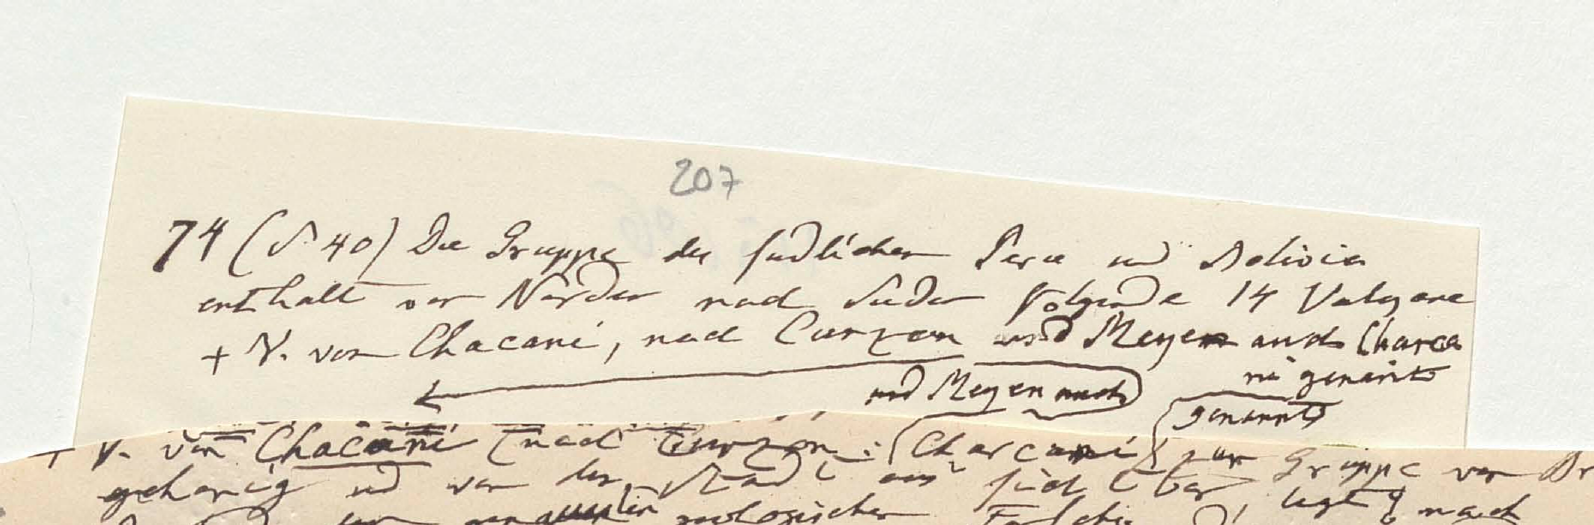 207
74 (S 40) Die Gruppe des südlichen Peru und Bolivia
enthält von Norden nach Süden folgende 14 Vulcane
+ V. von Chacani, nach Curzon und Meyen auch Charca
ni genannt
und Meyen auch
genannt
+ V. von Chacani (nach Curzon : Charcani) zur Gruppe von
gehörig und von der Stadt aus sichtbar liegt nach
geologischer